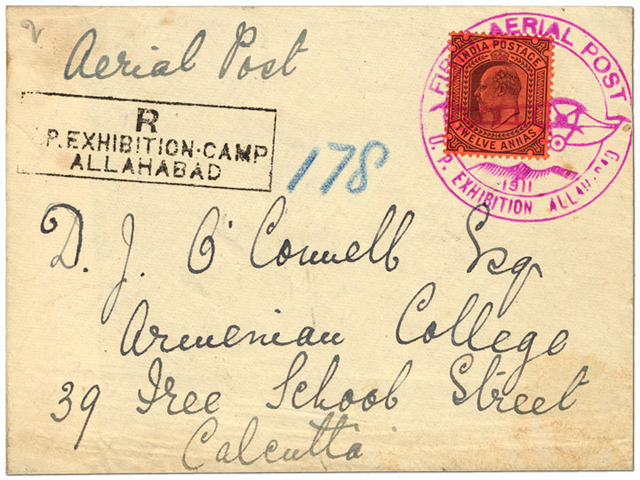 2
Aerial Post
FIRST AERIAL POST
INDIA POSTAGE
TWELVE ANNAS
1911
U.P. EXHIBITION ALLAHABAD
R
.P. EXHIBITION·CAMP
ALLAHABAD
178
D. J. O'Connell Esq
Armenian College
39 Free School Street
Calcutta